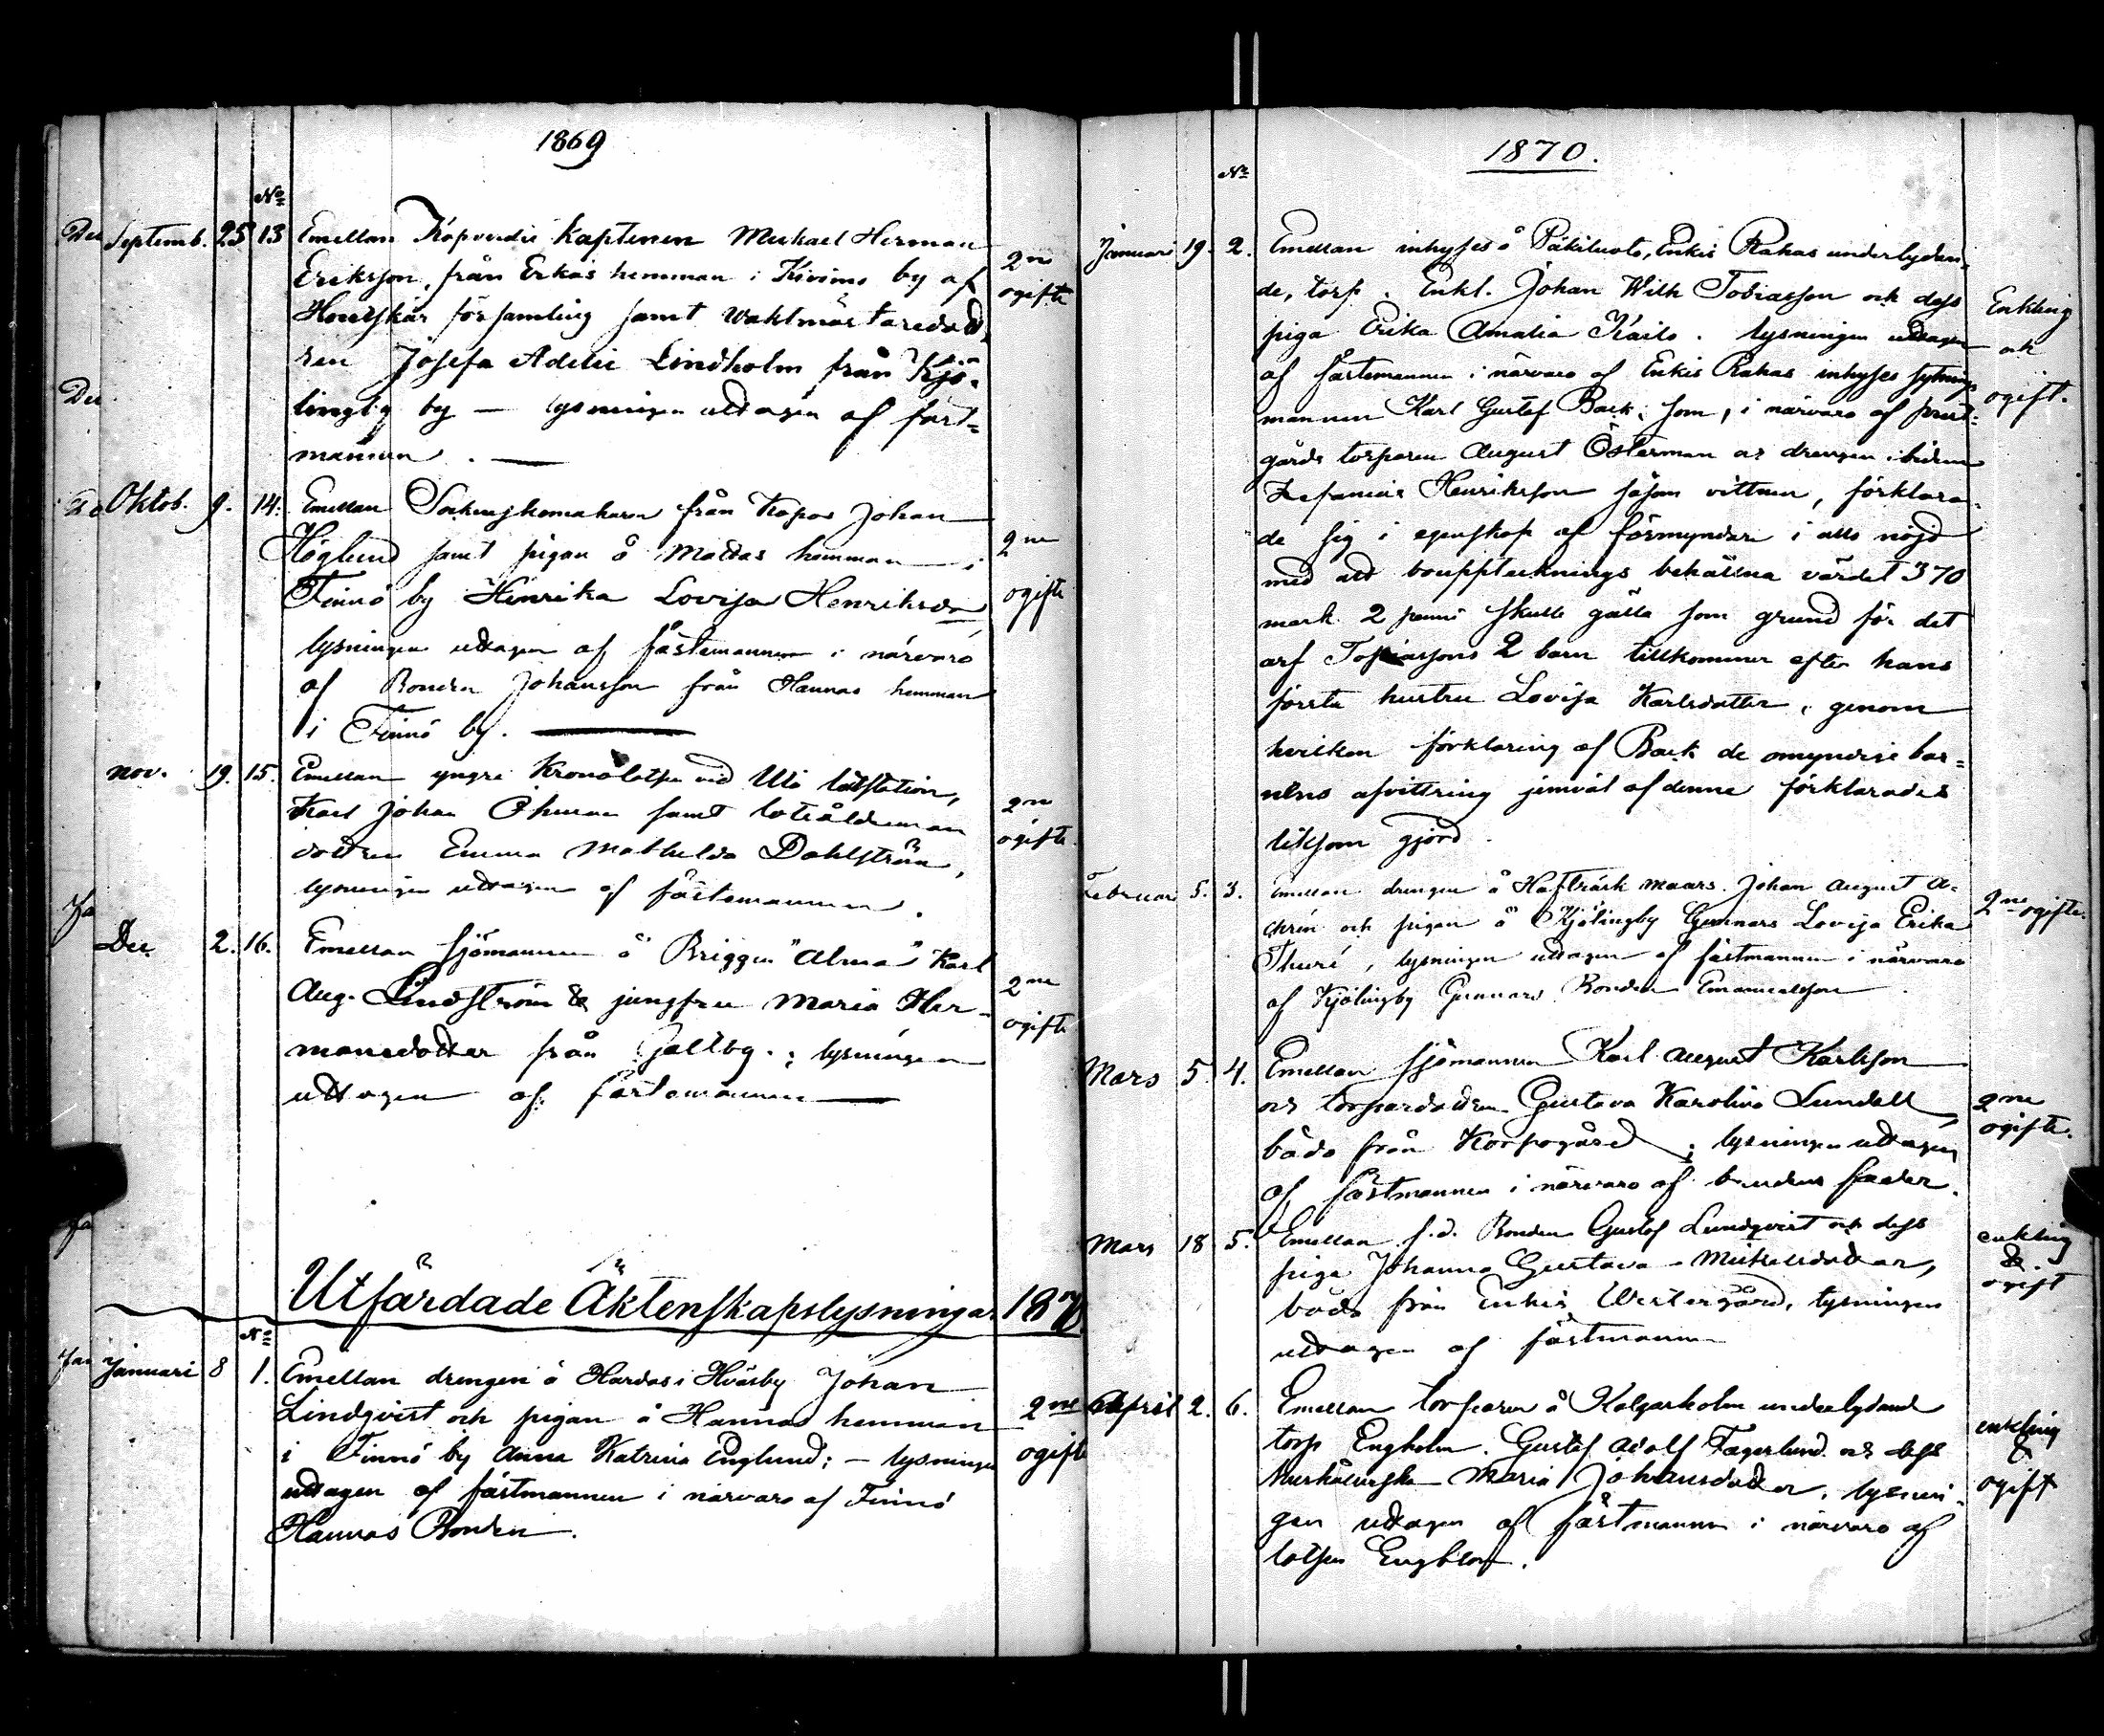 1869
No
Septemb. 25 13 Emellan Kopverdie kaptenen Mickael Herman
Eriksson, från Erkas hemman i Kivimo by af
2ne ogifte
Houtskär församling samt waktmästaredott
ren Josefa Adelie Lindholm från Kjö-
lingby by — lysningen uttagen af fäst-
mannen. —
Oktob. 9. 14. Emellan från Korpo Johan
Höglund samt pigan å Mattas hemman i
2ne
Finnö by Henrika Lovisa Henriksdr
ogifte
lysningen uttagen af fästemannen i närvaro
af Bonden Johansson från Hannas hemman
i Finnö by. —
Nov. 19. 15. Emellan yngre Kronolotsen vid Utö lotsstation,
Karl Johan Öhman samt lotsålderman
2ne
ogifte.
dottren Emma Mathilda Dahlström,
lysningen uttagen af fästemannen.
Dec. 2. 16. Emellan sjömannen å Briggen "Alma" Karl
Aug. Lindström & jungfru Maria Her-
2ne
ogifte
mansdotter från Galtby; lysningen
uttagen af fästemannen —
Utfärdade Äktenskapslysningar 1870
No
Januari 8 1. Emellan drengen å Hardas i Hväsby Johan
Lindqvist och pigan å Hannas hemman
2ne
i Finnö by Anna Katrina Englund; — lysningen
ogifte
uttagen af fästmannen i närvaro af Finnö
Hannas Bonden.
1870.
No
Januari 19. 2. Emellan inhyses å Päkiluoto, Enkis Rakas underlydan-
de, torp. Enkl. Johan Wilh Tobiasson och dess
Enkling
piga Erika Amalia Kailo. lysningen uttagen
och
af fästemannen i närvaro af Enkis Rakas inhyses sytnings
ogift.
mannen Karl Gustaf Back, som, i närvaro af prest-
gårds torparen August Österman och drengen ibidem
Zefanias Henriksson såsom vittnen, förklara-
de sig i egenskap af förmyndare i allo nöjd
med att bouppteknings behållna värdet 370
mark 2 penni skulle gälla som grund för det
arf Tobiassons 2 barn tillkommer efter hans
första hustru Lovisa Karlsdotter, genom
hvilken förklaring af Back de omyndige bar-
nens afvittring jemväl af denne förklarades
liksom gjord.
Februari 5. 3. Emellan drengen å Hafträsk Maars. Johan August A-
och pigan å Kjölingby Gunnars Lovisa Erika
2ne ogifte.
Thuré, lysningen uttagen af fästmannen i närvaro
af Kjölingby Gunnars Bonden Emanuelsson.
Mars 5. 4. Emellan sjömannen Karl August Karlsson
och torpardottren Gustava Karolina Lundell
2ne
ogifte.
båda från Korpogård; lysningen uttagen
af fästmannen i närvaro af brudens fader.
Mars 18 5. Emellan f.d. Bonden Gustaf Lundqvist och dess
enkling
&
ogift
piga Johanna Gustava Mickelsdotter,
båda från Enkis Westergård, lysningen
uttagen af fästmannen
April 2. 6. Emellan torparen å Kalgarholm underlydande
torp Engholm. Gustaf Adolf Fagerlund och dess
enkling
&
hushållerska Maria Johansdotter, lysnin-
ogift
gen uttagen af fästmannen i närvaro af
lotsen Engblom.